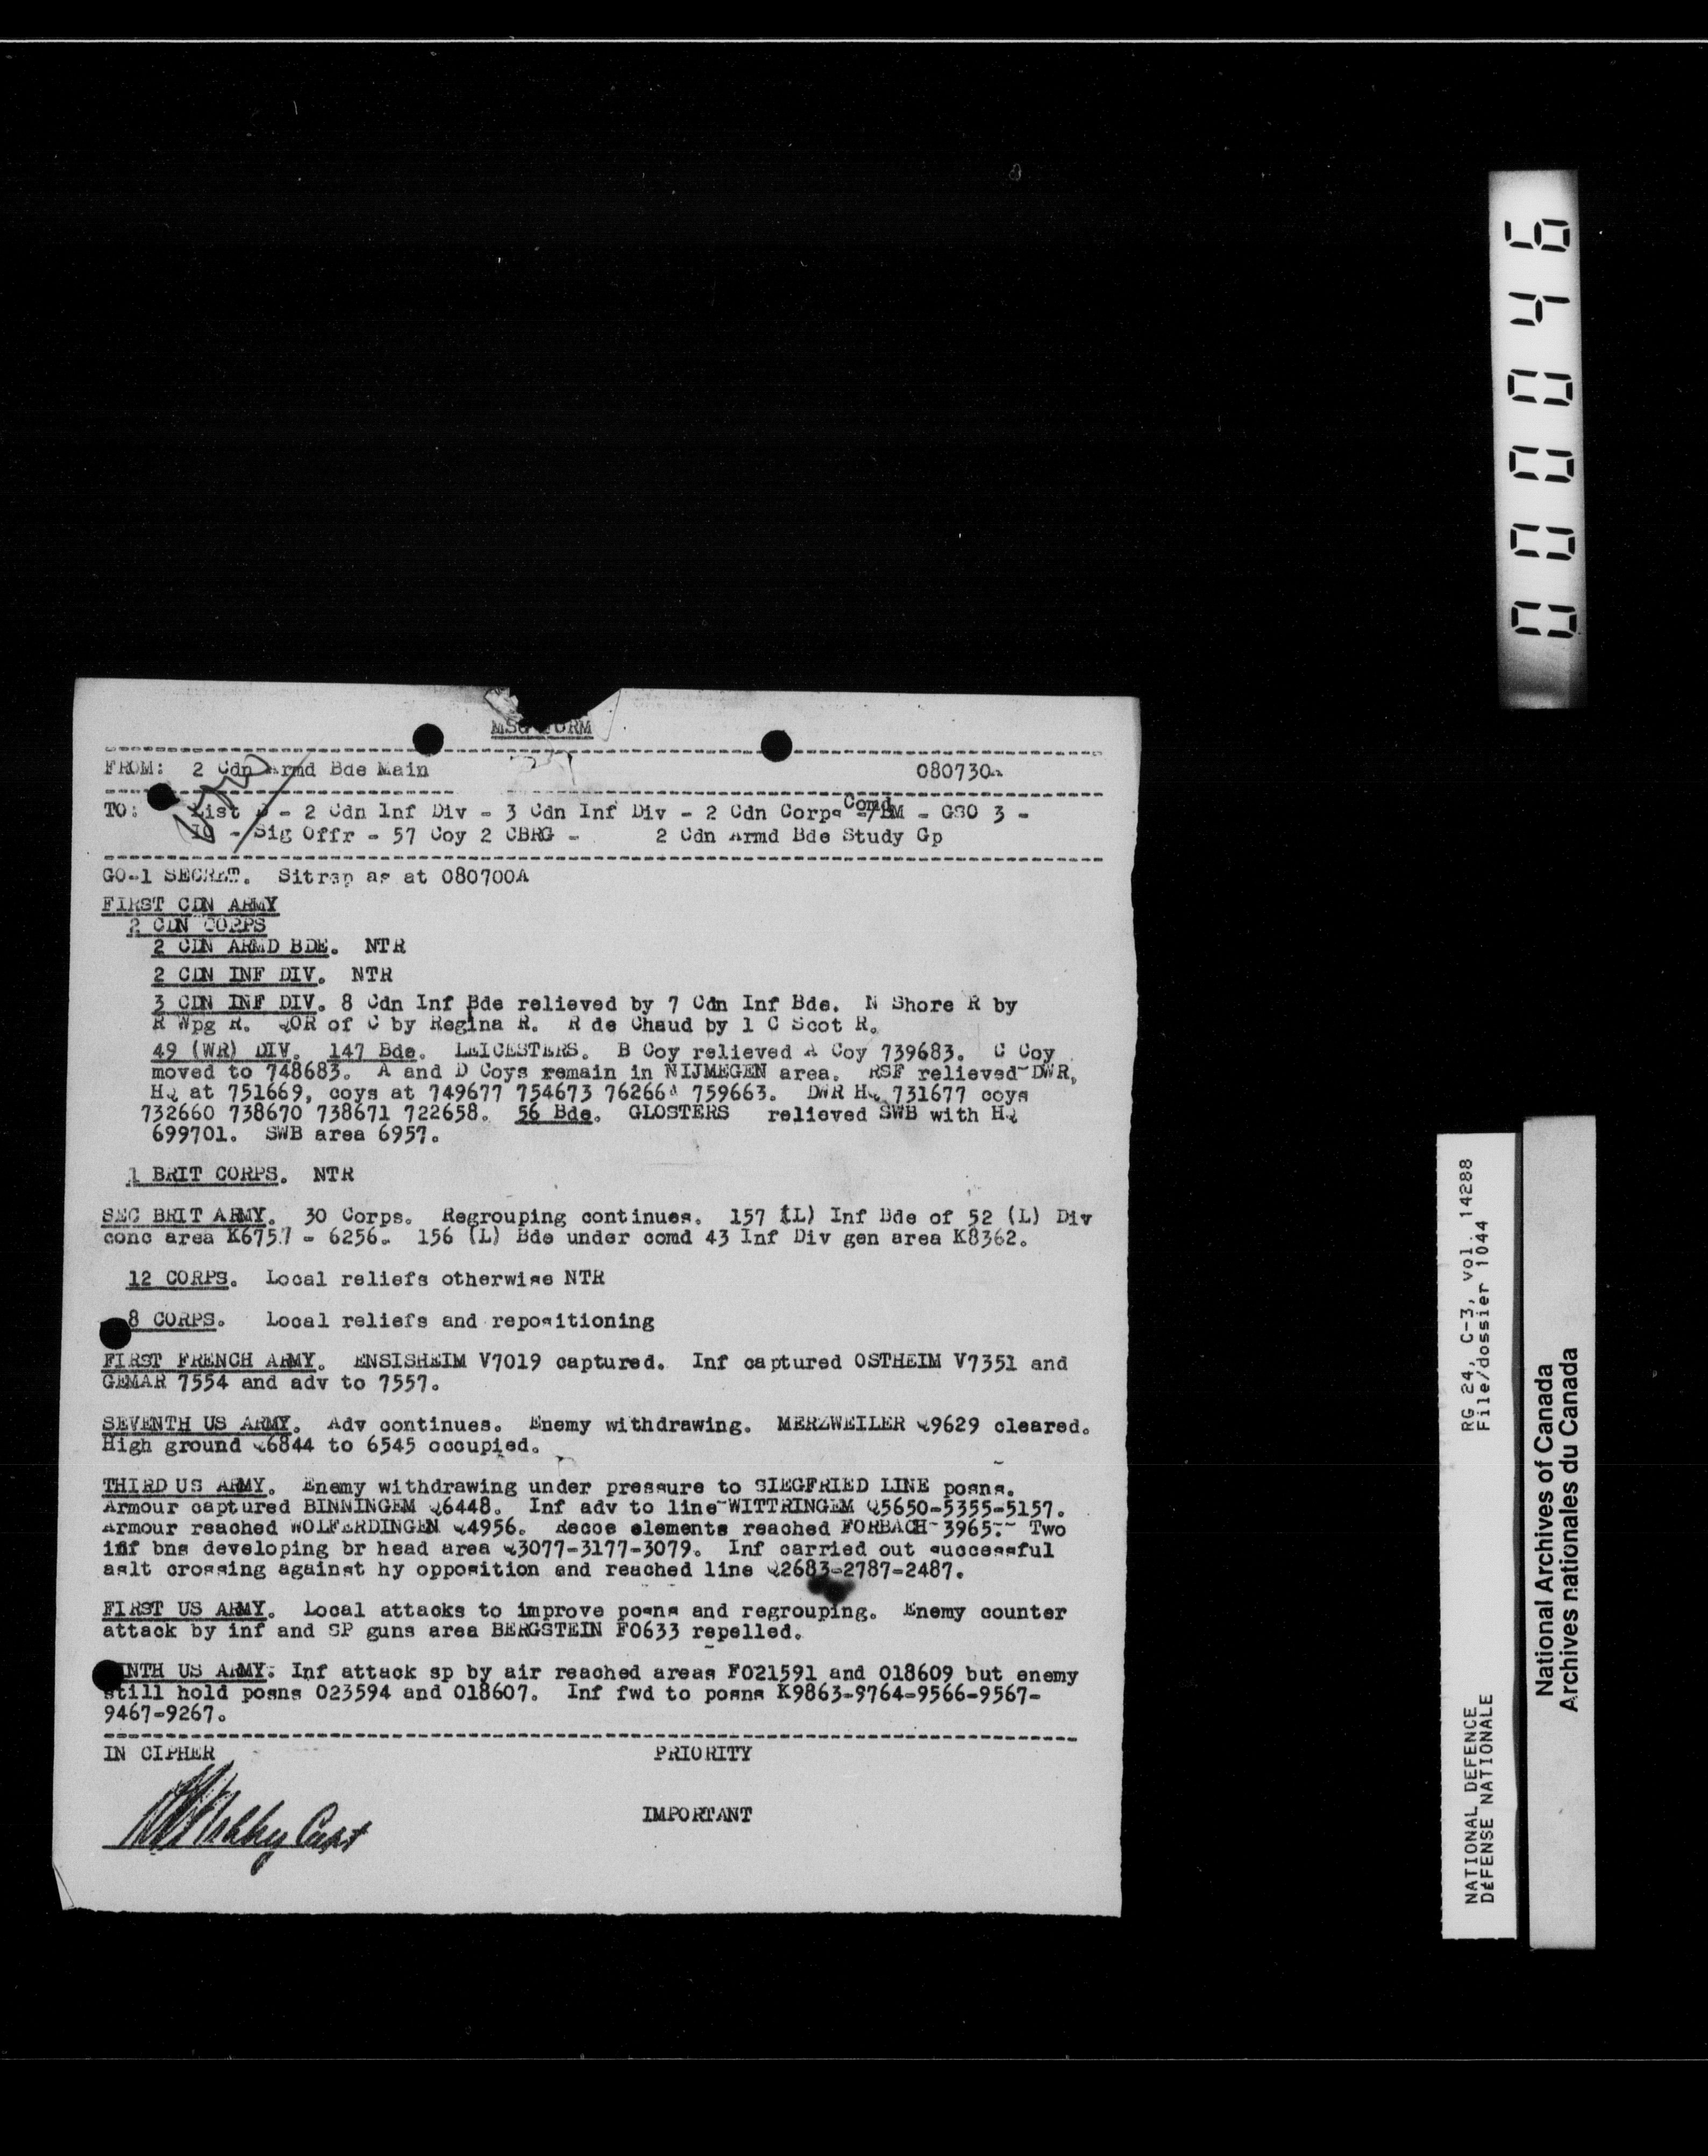 MSG FORM
FROM: 2 Cdn Armd Bde Main 080730A
TO: List D - 2 Cdn Inf Div - 3 Cdn Inf Div - 2 Cdn Corps - Comd/BM - GSO 3 -
IO - Sig Offr - 57 Coy 2 CBRG - 2 Cdn Armd Bde Study Gp
GO-1 SECRET. Sitrep as at 080700A
FIRST CDN ARMY
2 CDN CORPS
2 CDN ARMD BDE. NTR
2 CDN INF DIV. NTR
3 CDN INF DIV. 8 Cdn Inf Bde relieved by 7 Cdn Inf Bde. N Shore R by
R Wpg R. QOR of C by Regina R. R de Chaud by 1 C Scot R.
49 (WR) DIV. 147 Bde. LEICESTERS. B Coy relieved A Coy 739683. C Coy
moved to 748683. A and D Coys remain in NIJMEGEN area. RSF relieved DWR,
HQ at 751669, coys at 749677 754673 76266 759663. DWR HQ 731677 coys
732660 738670 738671 722658. 56 Bde. GLOSTERS relieved SWB with HQ
699701. SWB area 6957.
1 BRIT CORPS. NTR
SEC BRIT ARMY. 30 Corps. Regrouping continues. 157 (L) Inf Bde of 52 (L) Div
conc area K6757 - 6256. 156 (L) Bde under comd 43 Inf Div gen area K8362.
12 CORPS. Local reliefs otherwise NTR
8 CORPS. Local reliefs and repositioning
FIRST FRENCH ARMY. ENSISHEIM V7019 captured. Inf captured OSTHEIM V7351 and
GEMAR 7554 and adv to 7557.
SEVENTH US ARMY. Adv continues. Enemy withdrawing. MERZWEILER Q9629 cleared.
High ground Q6844 to 6545 occupied.
THIRD US ARMY. Enemy withdrawing under pressure to SIEGFRIED LINE posns.
Armour captured BINNINGEM Q6448. Inf adv to line WITTRINGEM Q5650-5355-5157.
Armour reached WOLFERDINGEN Q4956. Recce elements reached FORBACH 3965. Two
inf bns developing br head area Q3077-3177-3079. Inf carried out successful
aslt crossing against hy opposition and reached line Q2683-2787-2487.
FIRST US ARMY. Local attacks to improve posns and regrouping. Enemy counter
attack by inf and SP guns area BERGSTEIN F0633 repelled.
NINTH US ARMY. Inf attack sp by air reached areas F021591 and 018609 but enemy
still hold posns 023594 and 018607. Inf fwd to posns K9863-9764-9566-9567-
9467-9267.
IN CIPHER PRIORITY
IMPORTANT
Capt
000046
RG 24, C-3, vol. 14288
File/dossier 1044
NATIONAL DEFENCE
DÉFENSE NATIONALE
National Archives of Canada
Archives nationales du Canada